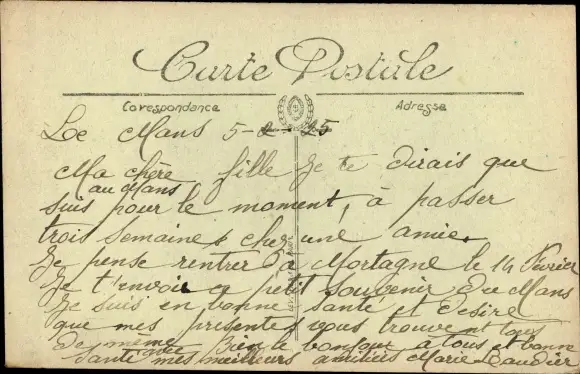 Carte Postale
Correspondance
Adresse
Le Mans 5-2-25
Ma chère fille Je te dirais que
au Mans
suis pour le moment, à passer
trois semaines chez une amie.
Je pense rentrer à Mortagne le 14 Février
Je t'envoie ce petit souvenir du Mans
Je suis en bonne santé et désire
que mes présentes vous trouvent tous
de même Bien le bonjour à tous et bonne
santé mes meilleurs amitiés Marie